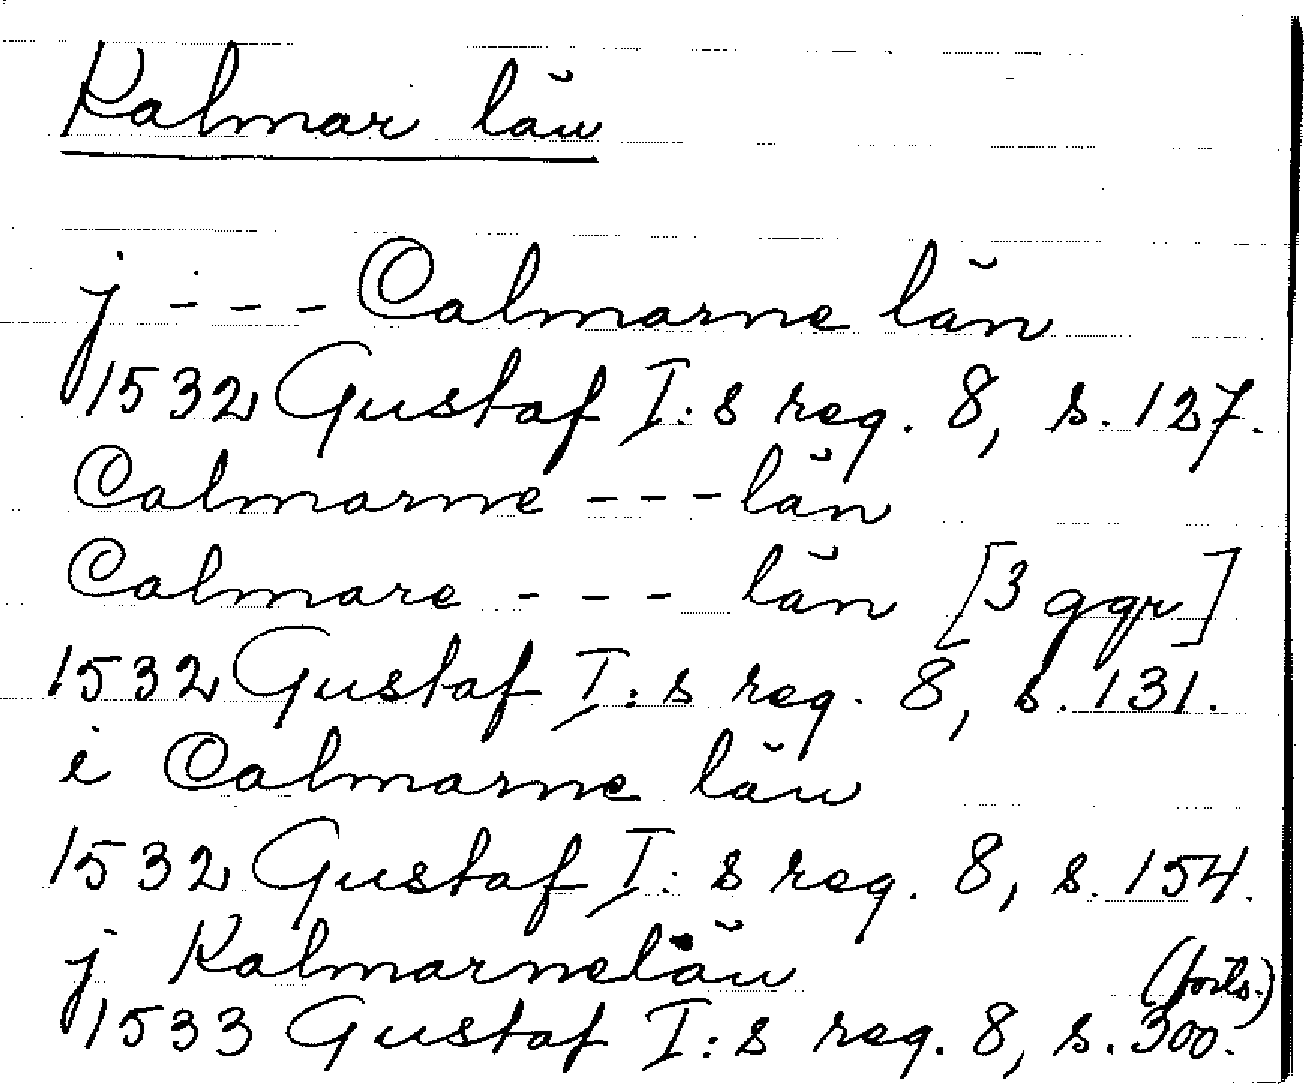 Kalmar län
j - - - Calmarne län
1532 Gustaf I:s reg. 8, s. 127.
Calmarne - - - län
Calmare - - - län [3 ggr]
1532 Gustaf I:s reg. 8, s. 131.
i Calmarne län
1532 Gustaf I:s reg. 8, s. 154.
j Kalmarnelän
(forts.)
1533 Gustaf I:s reg. 8, s. 300.